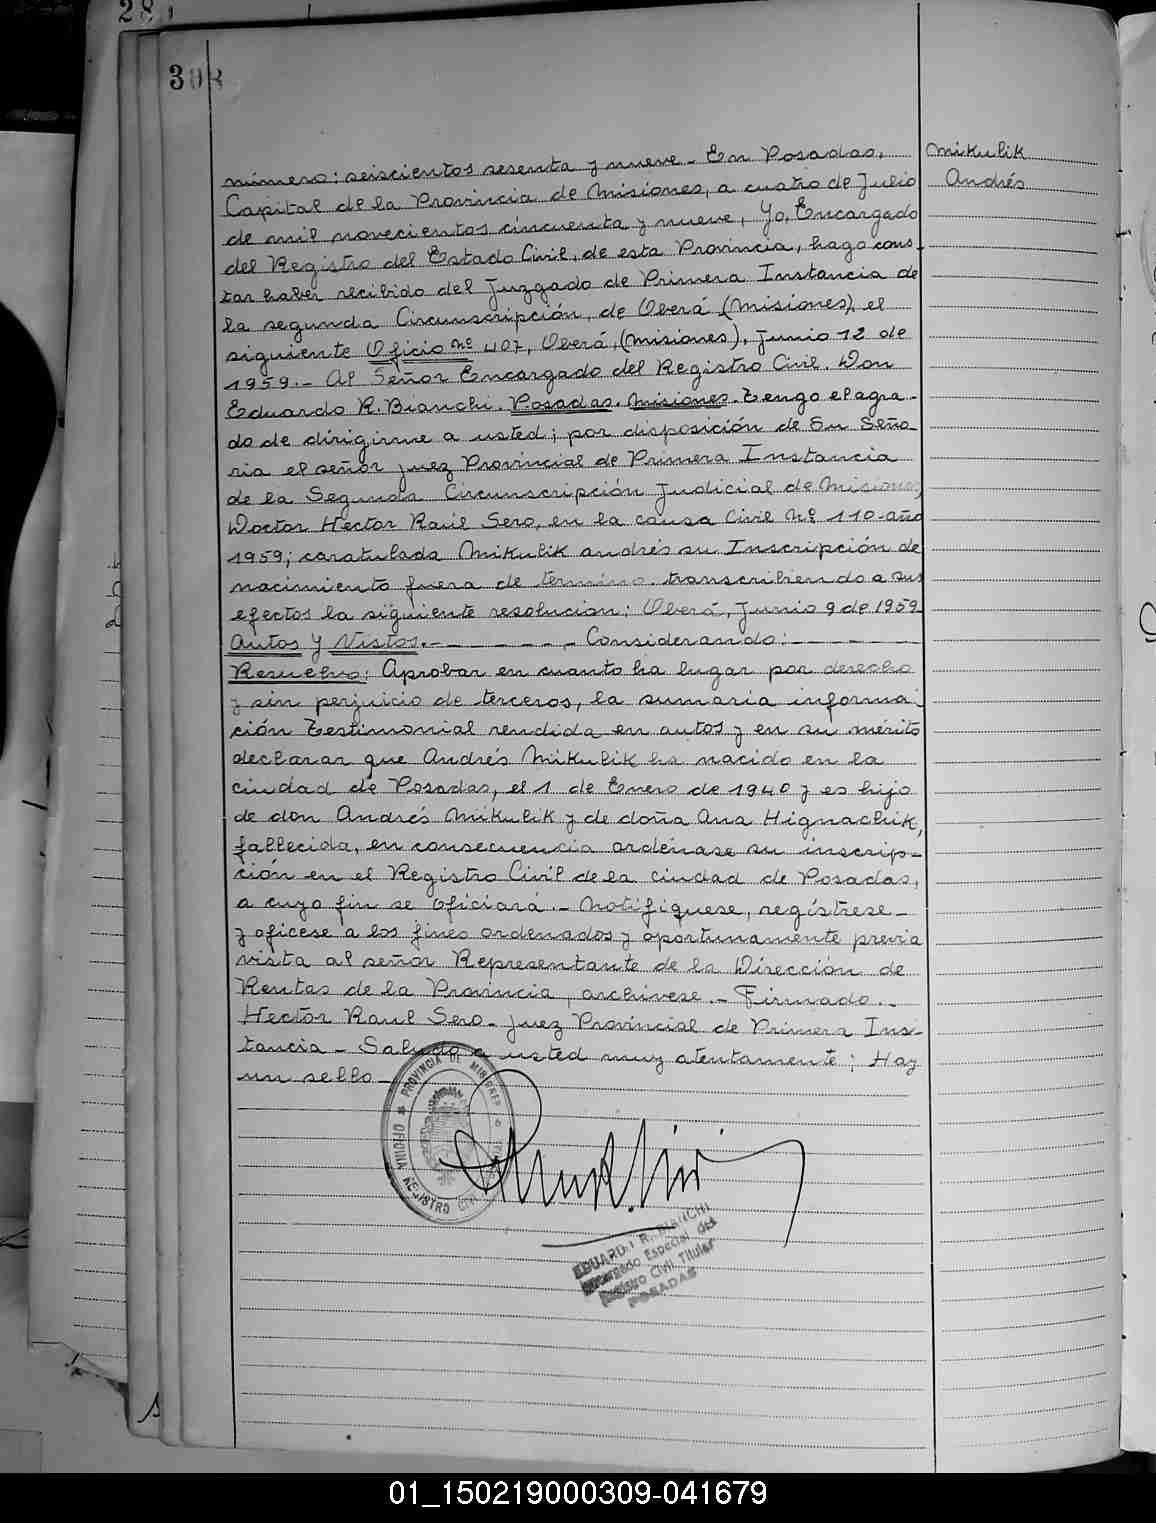 28
308
Mikulik
Andrés
número: seiscientos sesenta y nueve - En Posadas,
Capital de la Provincia de Misiones, a cuatro de Julio
de mil novecientos cincuenta y nueve, Yo, Encargado
del Registro del Estado Civil, de esta Provincia, hago cons-
tar haber recibido del Juzgado de Primera Instancia de
la segunda Circunscripción, de Oberá (Misiones), el
siguiente Oficio nº 407, Oberá, (Misiones), Junio 12 de
1959.- Al Señor Encargado del Registro Civil. Don
Eduardo R. Bianchi. Posadas. Misiones. Tengo el agra-
do de dirigirme a usted; por disposición de Su Seño-
ria el señor juez Provincial de Primera Instancia
de la Segunda Circunscripción Judicial de Misiones,
Doctor Hector Raúl Sero, en la causa Civil Nº 110-año
1959; caratulada Mikulik andrés su Inscripción de
nacimiento fuera de termino. transcribiendo a sus
efectos la siguiente resolucion: Oberá, Junio 9 de 1959
Autos y Vistos.- - - - - - - Considerando: - - - - - -
Resuelvo: Aprobar en cuanto ha lugar por derecho
y sin perjuicio de terceros, la sumaria informa-
ción Testimonial rendida en autos y en su mérito
declarar que Andrés Mikulik ha nacido en la
ciudad de Posadas, el 1 de Enero de 1940 y es hijo
de don Andrés Mikulik y de doña Ana Hignachik,
fallecida, en consecuencia ordénase su inscrip-
ción en el Registro Civil de la ciudad de Posadas,
a cuyo fin se oficiará.- Notifiquese, regístrese-
y oficese a los fines ordenados y oportunamente previa
vista al señor Representante de la Dirección de
Rentas de la Provincia, archivese.- Firmado.-
Hector Raul Sero- juez Provincial de Primera Ins-
tancia - Saludo a usted muy atentamente; Hay
un sello-
PROVINCIA DE MISIONES
OFICINA REGISTRO CIVIL
EDUARDO R. BIANCHI
Encargado Especial del
Registro Civil Titular
POSADAS
01_150219000309-041679